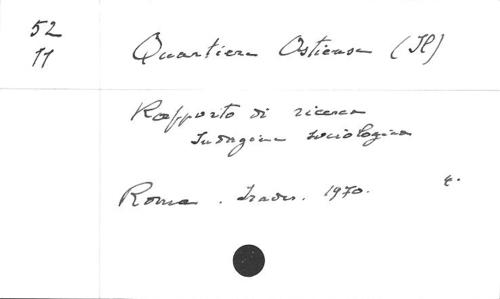 52
11
Quartiere Ostiense (Il)
Rapporto di ricerca
Indagine sociologica
Roma. 1970.